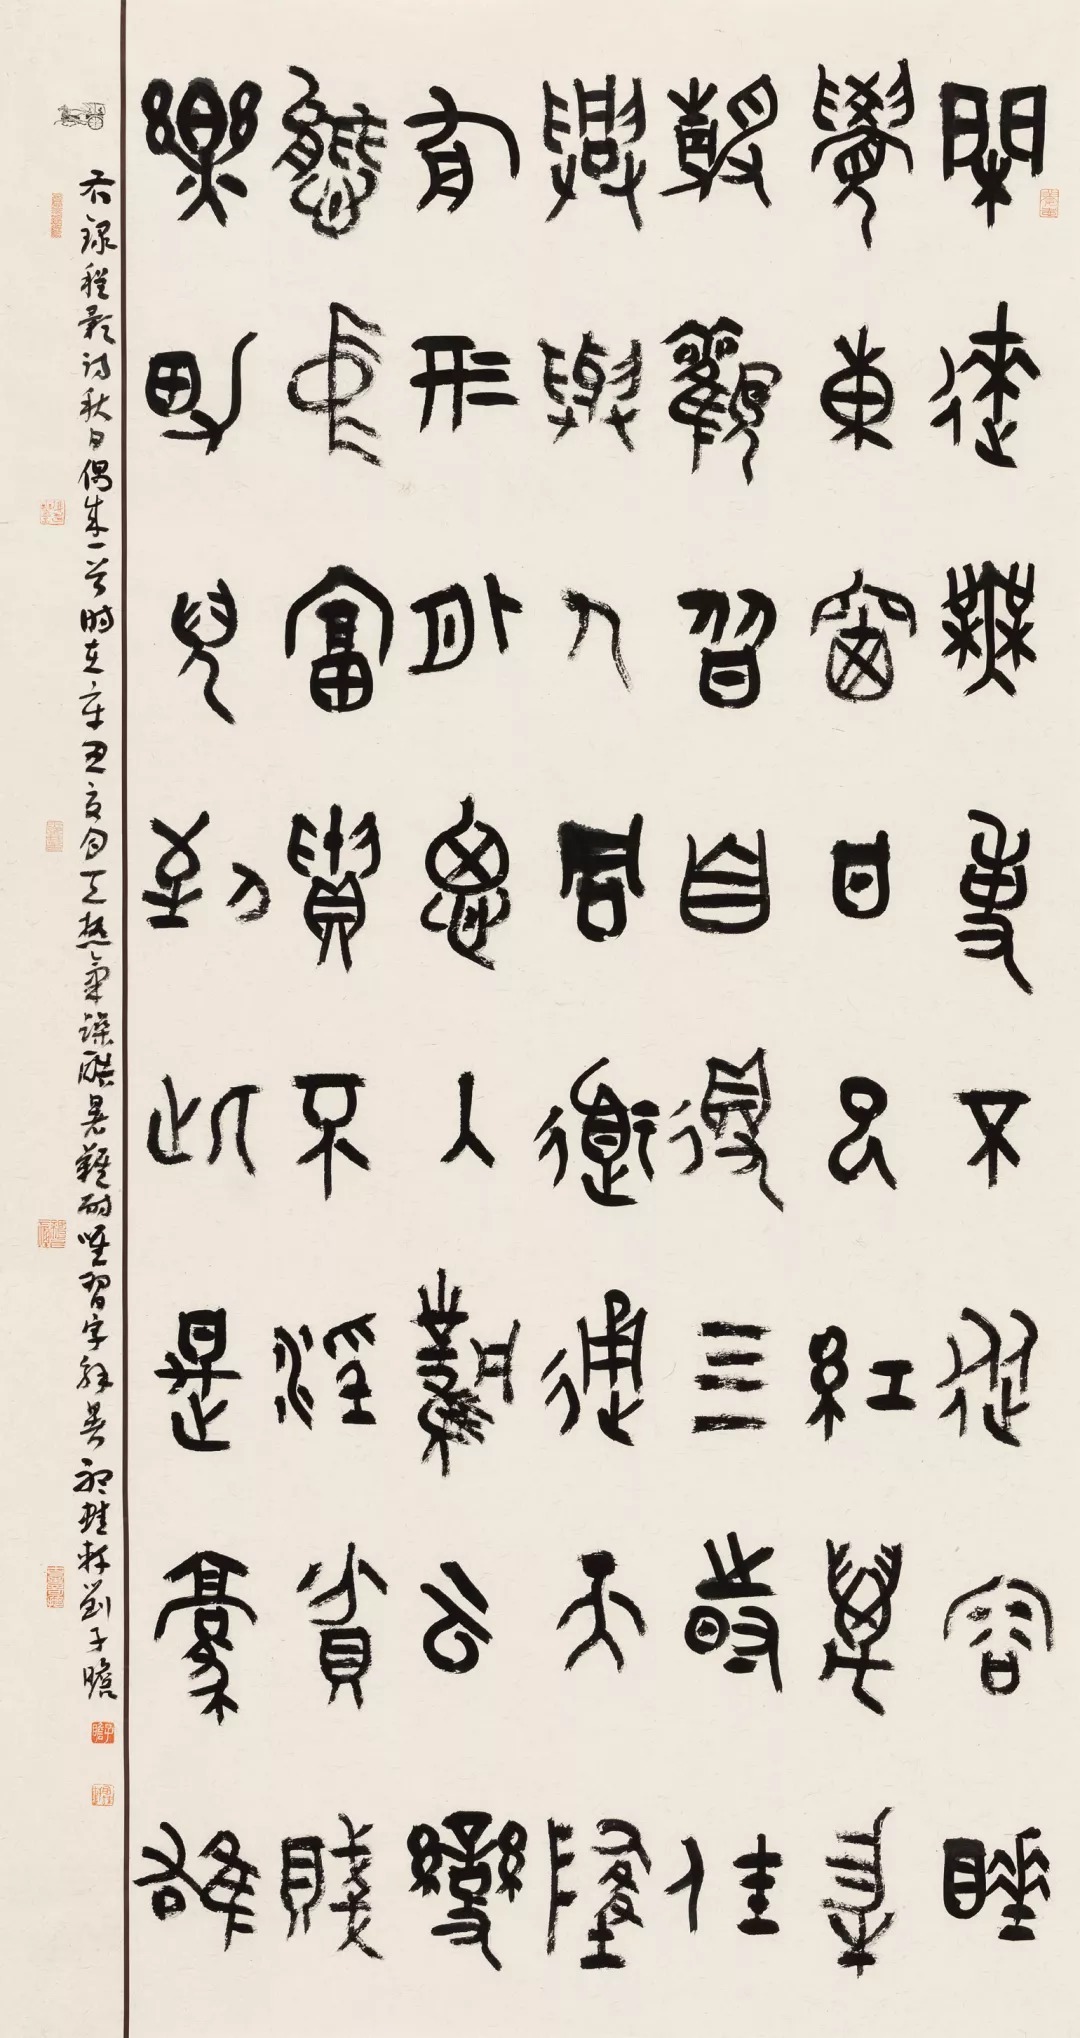 閑來無事不從容睡
覺東窗日已紅萬物
靜觀皆自得四時佳
興與人同道通天地
有形外思入風雲變
態中富貴不淫貧賤
樂男兒到此是豪雄
右録程顥詩秋日偶成一首時在辛丑夏月天熱氣燥酷暑難耐唯習字解暑軒劉子瞻